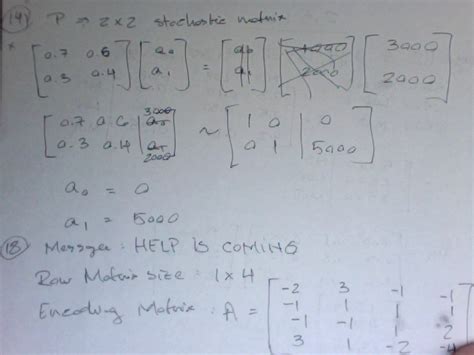 (14) P ⇒ 2×2 stochastic matrix
* [0.7 0.6; 0.3 0.4] [a₀; a₁] = [a₀; a₁] [3000; 2000]
[0.7 0.6 | 3000; 0.3 0.4 | 2000] ~ [1 0 | 0; 0 1 | 5000]
a₀ = 0
a₁ = 5000
(18) Messgae : HELP IS COMING
Row Matrix size : 1×4
Encoding Matrix : A = [-2 3 -1 -1; -1 1 1 1; -1 -1 1 2; 3 1 -2 -4]